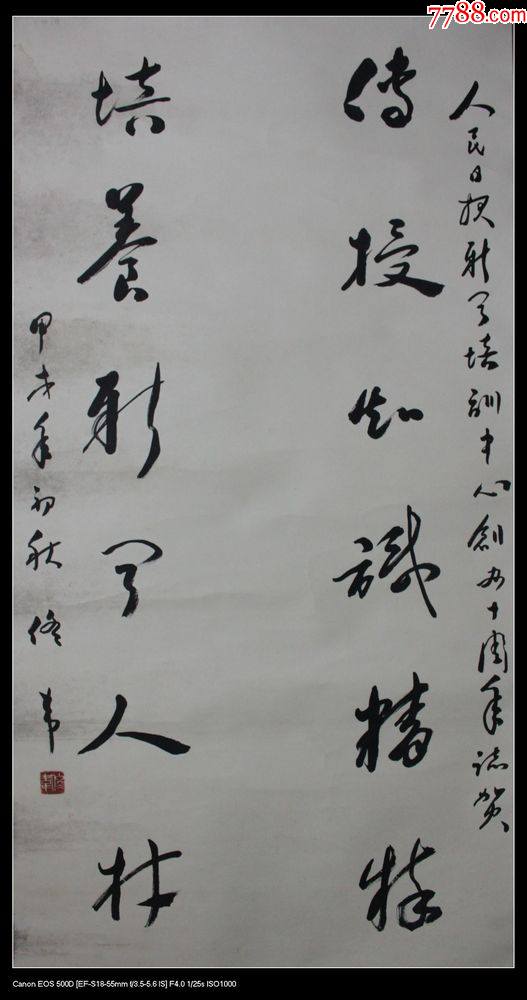 7788.com
人民日报新闻培訓中心創办十周年誌贺
傳授知識精粹
培養新闻人材
甲戌年初秋 佟韦
Canon EOS 500D [EF-S18-55mm f/3.5-5.6 IS] F4.0 1/25s ISO1000